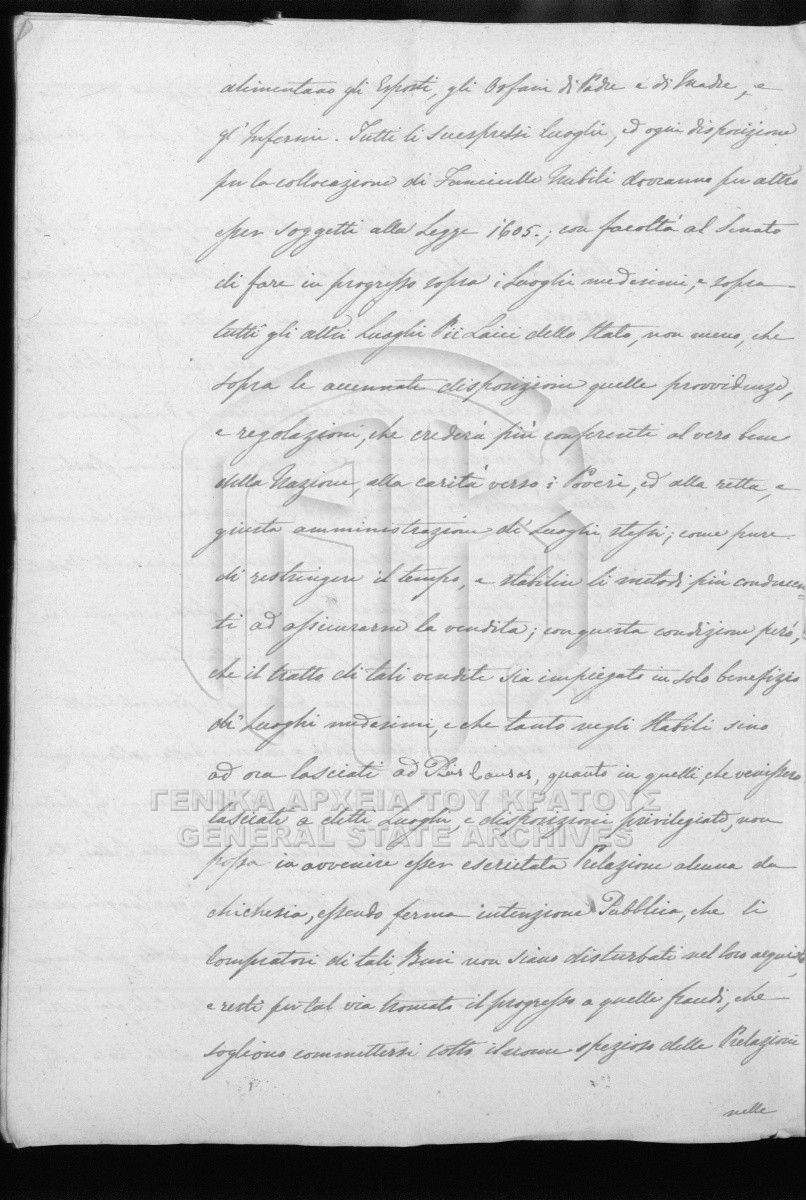 alimentano gli Esposti, gli Orfani di Padre e di Madre, e
gl' Infermi. Tutti li suespressi Luoghi, ed ogni disposizione
per la collocazione di Fanciulle Nubili dovranno per altro
esser soggetti alla Legge 1605.; con facoltà al Senato
di fare in progresso sopra i Luoghi medesimi, e sopra
tutti gli altri Luoghi Pii Laici dello Stato, non meno, che
sopra le accennate disposizioni quelle provvidenze,
e regolazioni, che crederà più conferenti al vero bene
della Nazione, alla carità verso i Poveri, ed alla retta, e
giusta amministrazione di Luoghi stessi; come pure
di restringere il tempo, e stabilire li metodi più conducen=
ti ad assicurarne la vendita; con questa condizione però,
che il tratto di tali vendite sia impiegato in solo benefizio
di Luoghi medesimi, e che tanto negli Stabili sino
ad ora lasciati ad Pias Causas, quanto in quelli, che venissero
ΓΕΝΙΚΑ ΑΡΧΕΙΑ ΤΟΥ ΚΡΑΤΟΥΣ
lasciati a detti Luoghi, e disposizioni privilegiate, non
GENERAL STATE ARCHIVES
possa in avvenire esser esercitata Prelazione alcuna da
chichesia, essendo ferma intenzione Pubblica, che li
Compratori di tali Beni non siano disturbati nel loro acquisto,
e resti per tal via troncato il progresso a quelle fraudi, che
sogliono commettersi sotto il nome spezioso delle Prelazioni
nelle